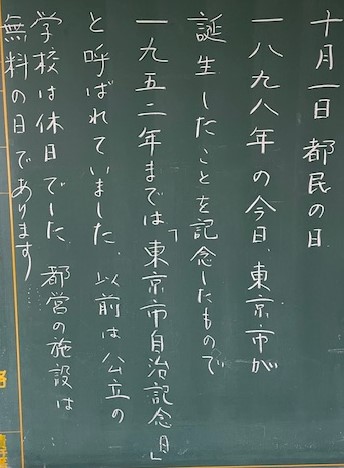 十月一日 都民の日
一八九八年の今日、東京市が
誕生したことを記念したもので
一九五二年までは「東京市自治記念日」
と呼ばれていました。以前は公立の
学校は休日でした。都営の施設は
無料の日であります